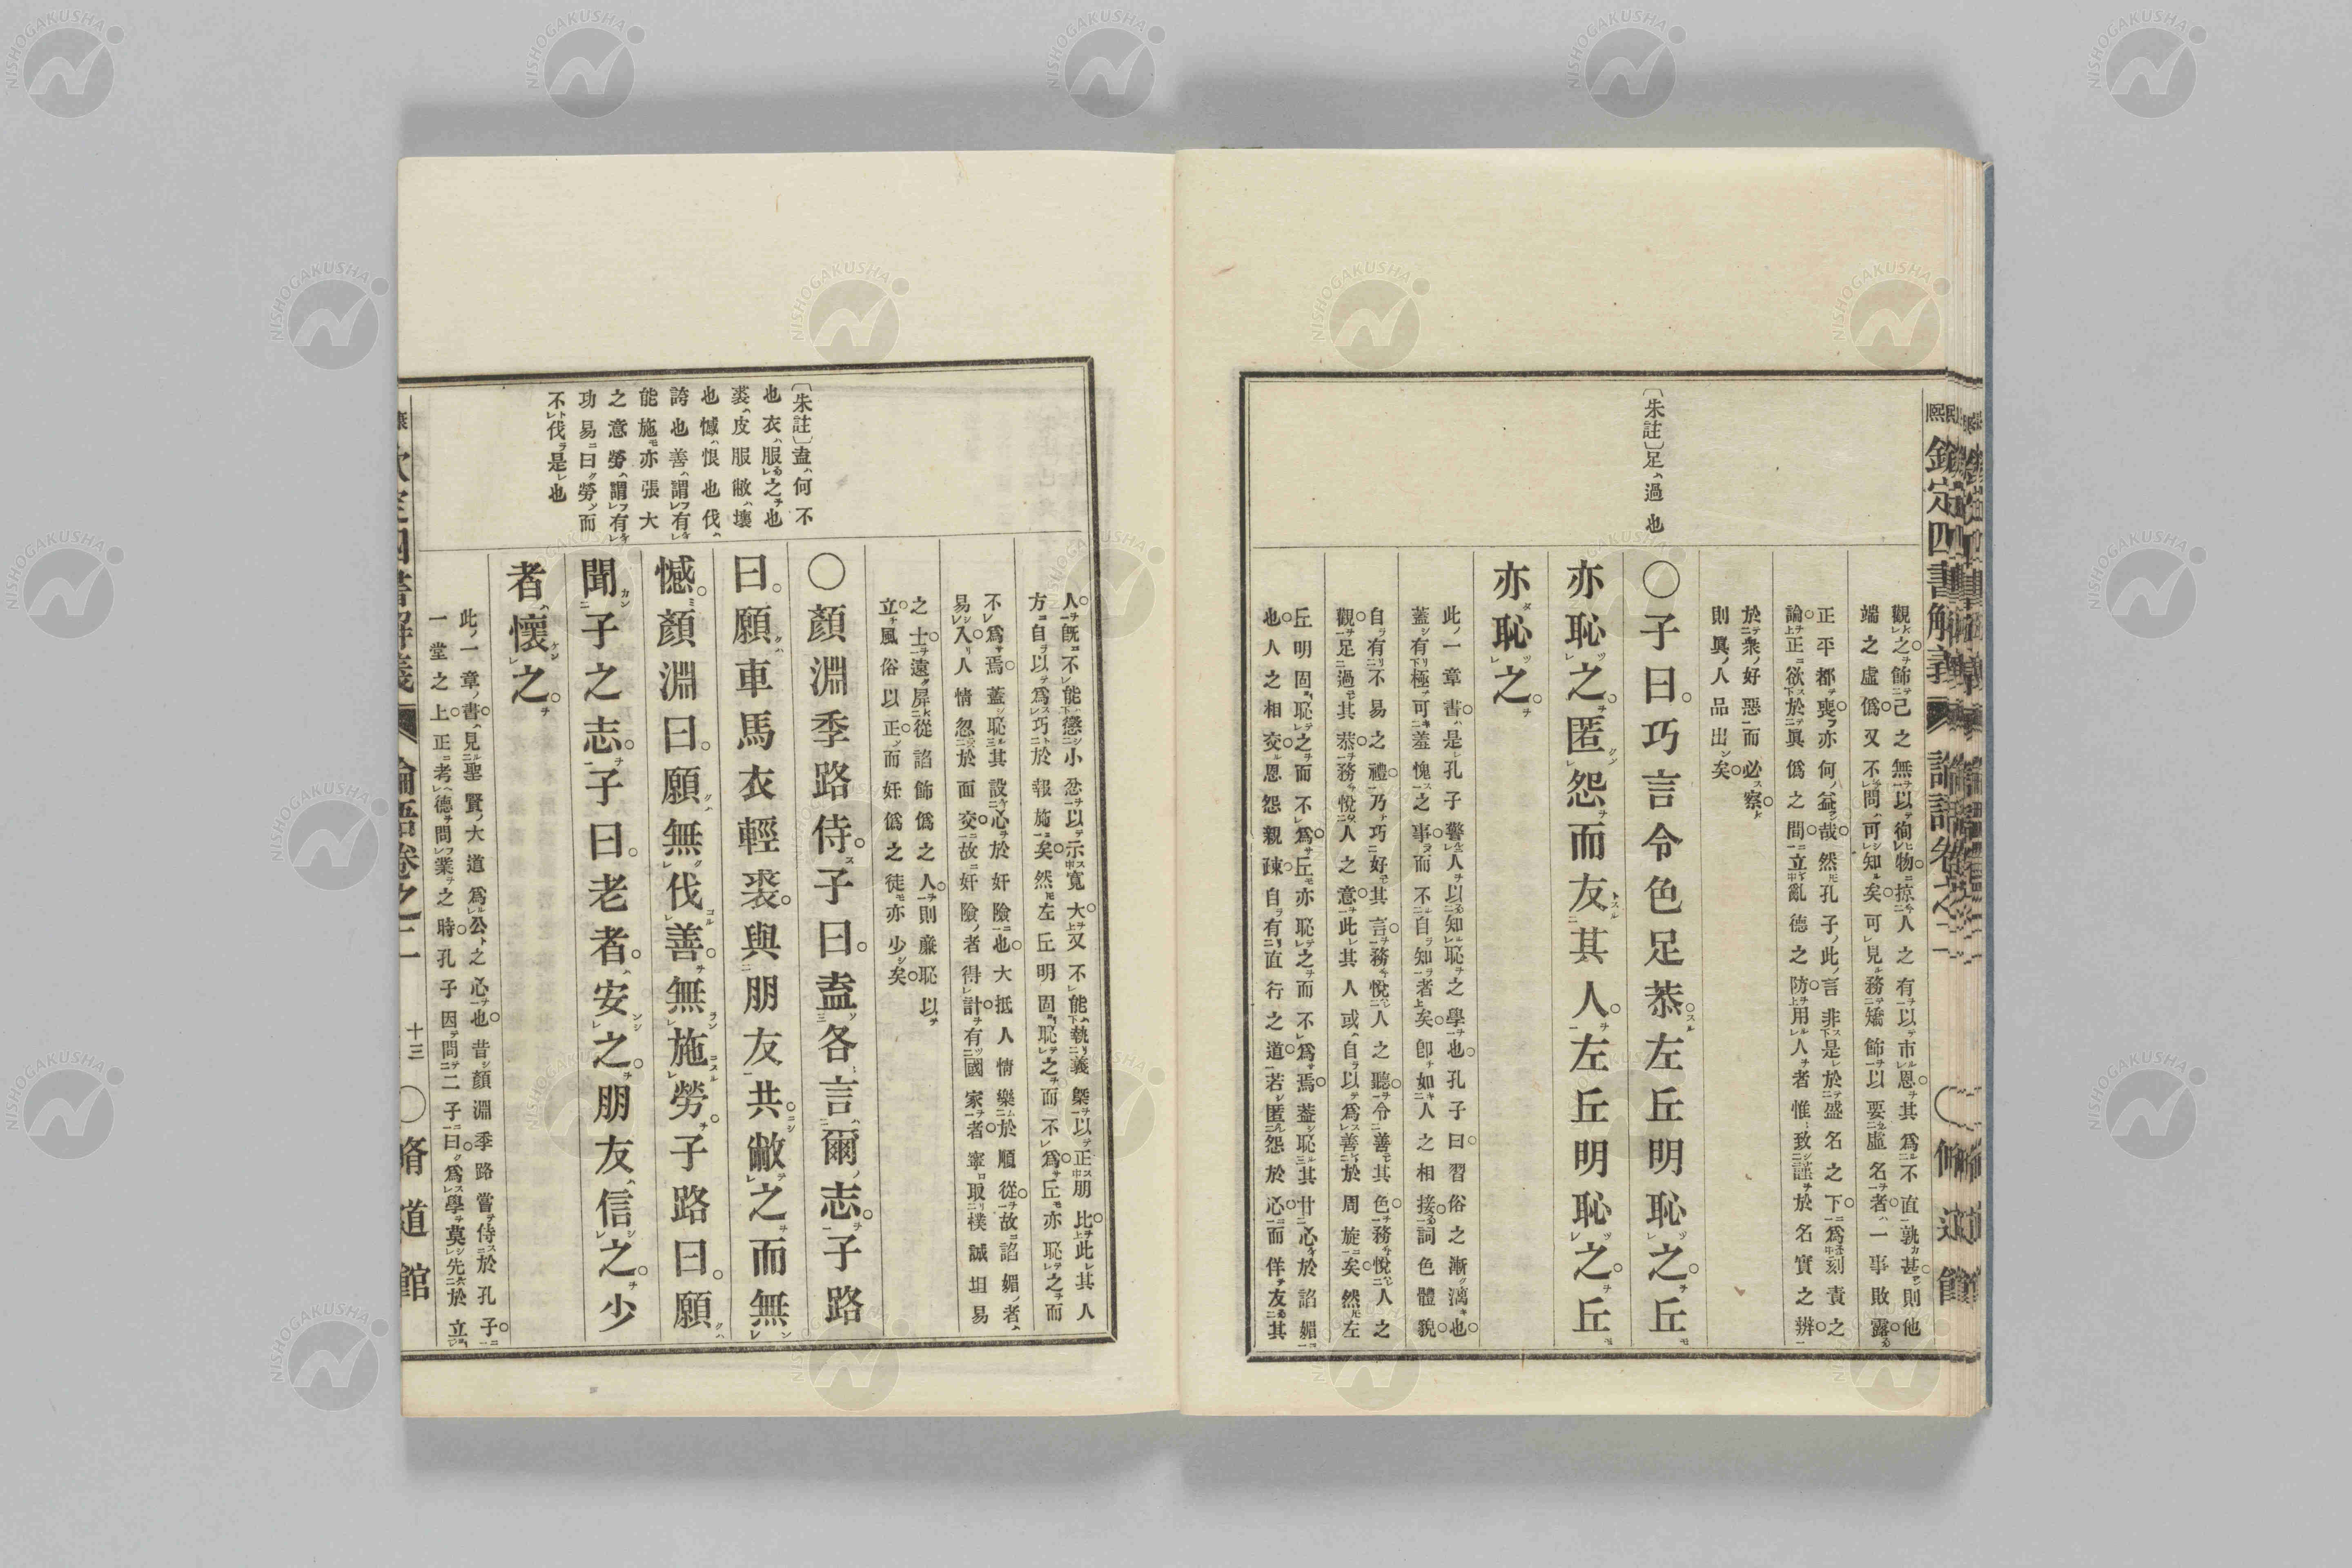 觀之飾己之無以徇物掠人之有以市恩其爲不直孰甚則他
端之虛僞又不問可知矣可見務矯飾以要虛名者一事敗露
正平都喪亦何益哉然孔子此言非是於盛名之下爲刻責之
論正欲於眞僞之間立亂德之防用人者惟致謹於名實之辨
於衆好惡而必察
則眞人品出矣
〔朱註〕足ハ過也
○子曰巧言令色足恭左丘明恥之丘
亦恥之匿怨而友其人左丘明恥之丘
亦恥之
此一章書是孔子警人以知恥之學也孔子曰習俗之漸漓也
蓋有極可羞愧之事而不自知者矣卽如人之相接詞色體貌
自有不易之禮乃巧好其言務悅人之聽令善其色務悅人之
觀足過其恭務悅人之意此其人或自以爲善於周旋矣然左
丘明固恥之而不爲丘亦恥之而不爲焉蓋恥其甘心於諂媚
也人之相交恩怨親疎自有直行之道若匿怨於心而佯友其
人旣不能懲小忿以示寬大又不能執義槩以正朋比此其人
方自以爲巧於報施矣然左丘明固恥之而不爲丘亦恥之而
不爲焉蓋恥其設心於奸險也大抵人情樂於順從故諂媚者
易入人情忽於面交故奸險者得計有國家者寧取樸誠坦易
之士遠屛從諂飾僞之人則廉恥以
立風俗以正而奸僞之徒亦少矣
〔朱註〕盍ハ何不
也衣ハ服之也
裘ハ皮服敝ハ壞
也憾ハ恨也伐ハ
誇也善ハ謂有
能施亦張大
之意勞ハ謂有
功易曰勞而
不伐是也
○顏淵季路侍子曰盍各言爾志子路
曰願車馬衣輕裘與朋友共敝之而無
憾顏淵曰願無伐善無施勞子路曰願
聞子之志子曰老者安之朋友信之少
者懷之
此一章書見聖賢大道爲公之心也昔顏淵季路嘗侍於孔子
一堂之上正考德問業之時孔子因問二子曰爲學莫先於立
論語卷之二 十三 ○脩道館